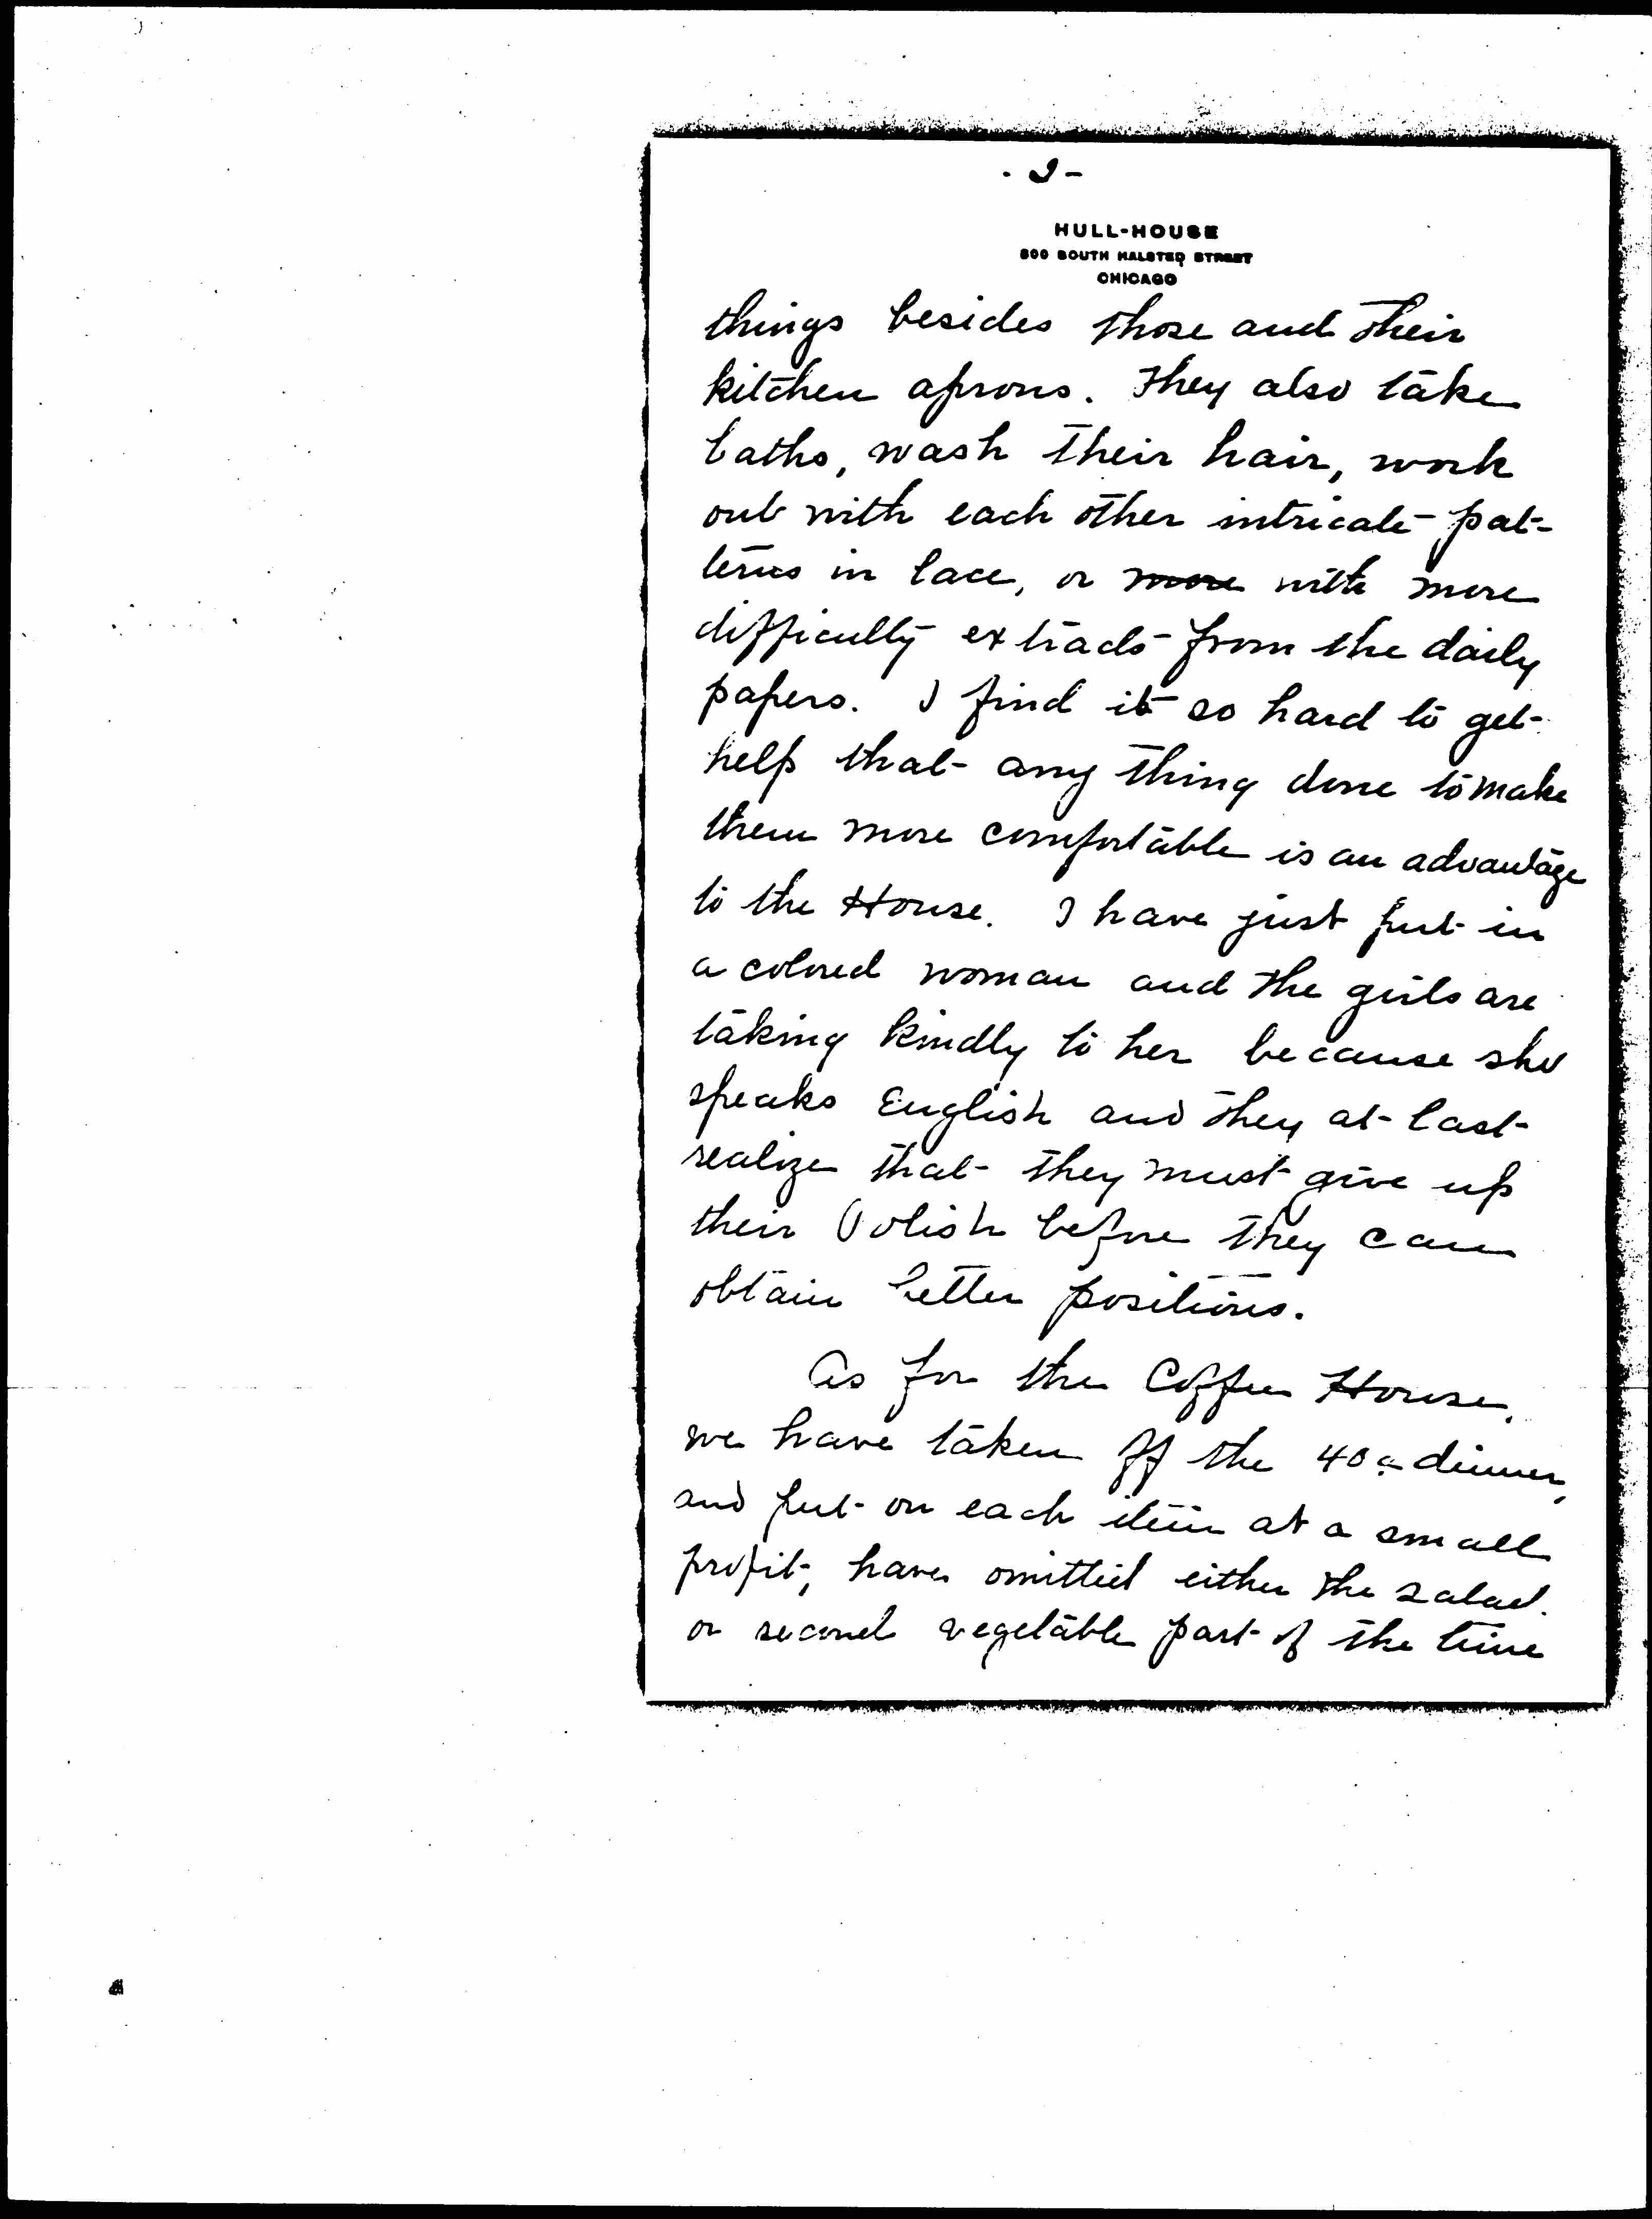 - 2 -
HULL-HOUSE
800 SOUTH HALSTED STREET
CHICAGO
things besides those and their
kitchen aprons. They also take
baths, wash their hair, work
out with each other intricate pat-
terns in lace, or more with more
difficulty extracts from the daily
papers. I find it so hard to get
help that any thing done to make
them more comfortable is an advantage
to the House. I have just put in
a colored woman and the girls are
taking kindly to her because she
speaks English and they at last
realize that they must give up
their Polish before they can
obtain better positions.
As for the Coffee House,
we have taken off the 40c dinner,
and put on each item at a small
profit, have omitted either the salad
or second vegetable part of the time